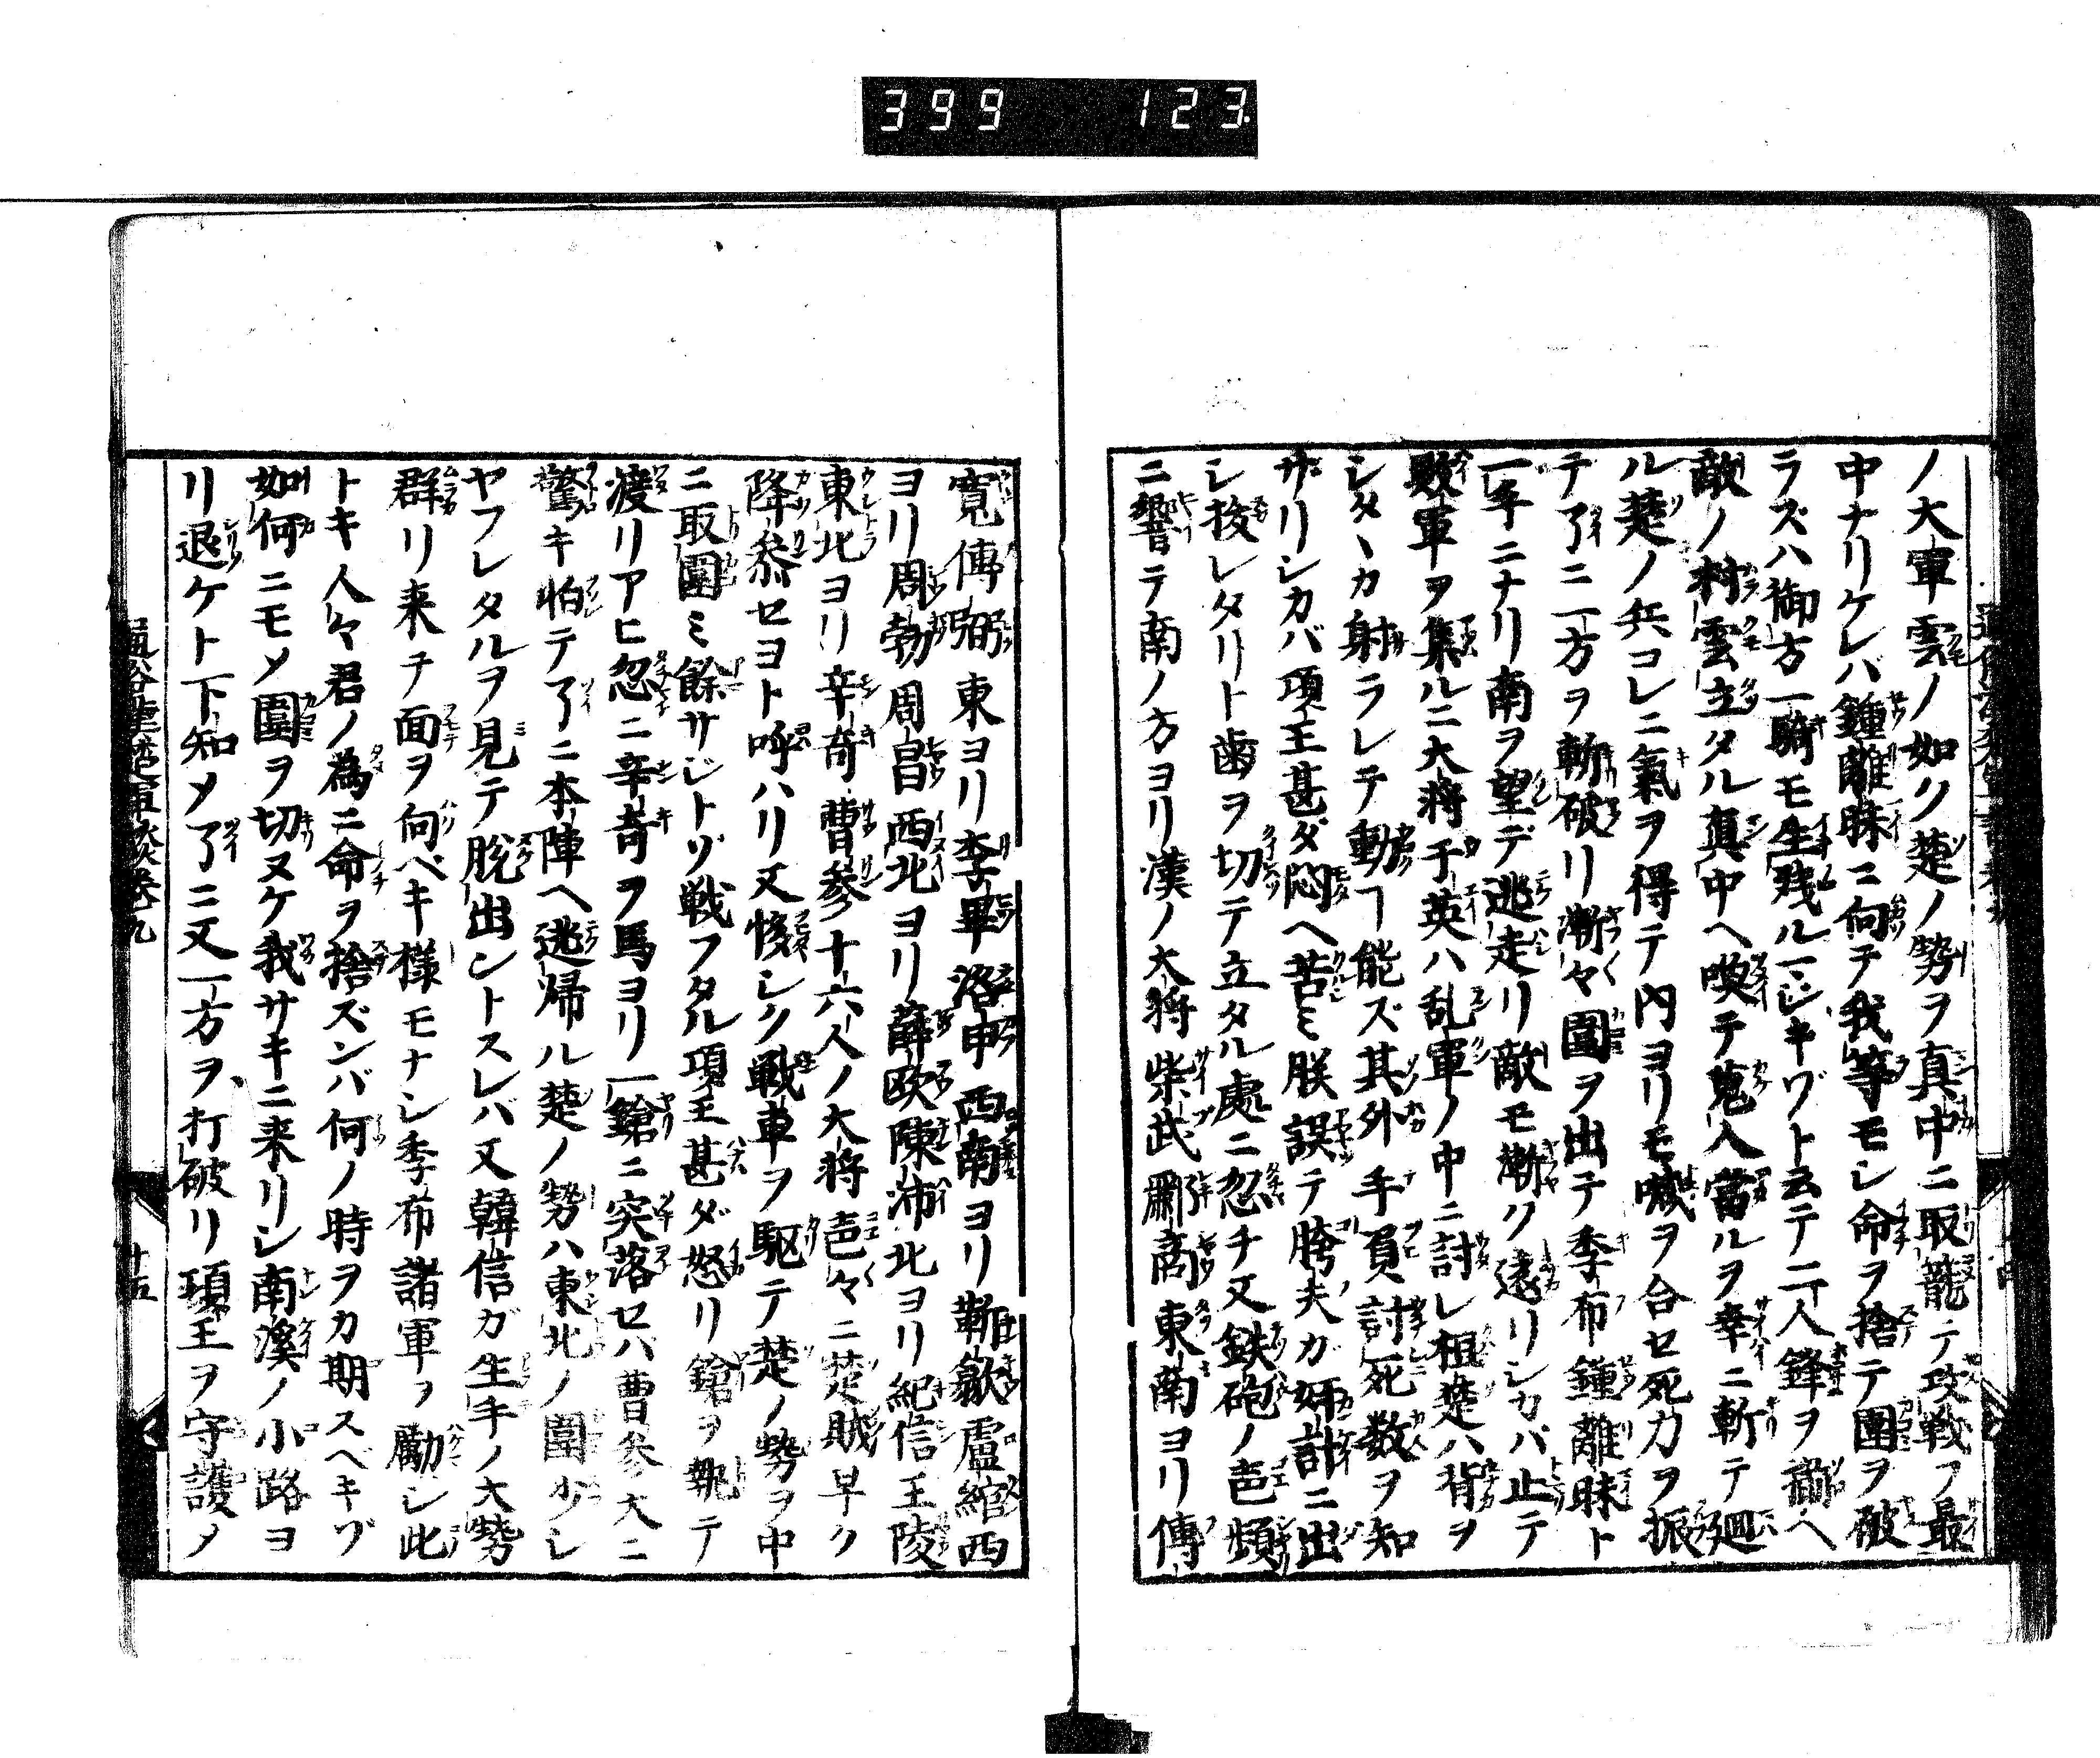 399 123
ノ大軍雲ノ如ク楚ノ勢ヲ真中ニ取籠テ攻戦フ最
中ナリケレバ鍾離眛ニ向テ我等モシ命ヲ捨テ圍ヲ破
ラズハ御方一騎モ生残ルヿ有マジキゾト云テ二人鋒ヲ
敵ノ村雲立タル真中ヘ喚テ蒐入當ルヲ幸ニ斬テ廻
ル楚ノ兵コレニ氣ヲ得テ内ヨリモ喊ヲ合セ死力ヲ振
テ了ニ一方ヲ斬破リ漸々圍ヲ出テ季布鍾離眛ト
一手ニナリ南ヲ望デ逃走リ敵モ漸ク遠リシカバ止テ
敗軍ヲ集ルニ大将于英ハ乱軍ノ中ニ討レ桓楚ハ背ヲ
シタヽカ射ラレテ動ヿ能ズ其外手負討死数ヲ知
ザリシカバ項王甚ダ悶ヘ苦ミ朕誤テ胯夫ガ姧計ニ出
シ挍レタリト歯ヲ切テ立タル處ニ忽チ又鉄砲ノ声頻
ニ響テ南ノ方ヨリ漢ノ大将柴武 東南ヨリ傳
寛傅弼東ヨリ李畢洛甲西南ヨリ靳歙盧綰西
ヨリ周勃周昌西北ヨリ薛欧陳沛北ヨリ紀信王陵
東北ヨリ辛奇曹參十六人ノ大将声々ニ楚賊早ク
降參セヨト呼ハリ又悛シク戦車ヲ駆テ楚ノ勢ヲ中
ニ取圍ミ餘サジトゾ戦フタル項王甚ダ怒リ鎗ヲ執テ
渡リアヒ忽ニ辛奇ヲ馬ヨリ一鎗ニ突落セバ曹參大ニ
驚キ怕テ了ニ本陣ヘ逃帰ル楚ノ勢ハ東北ノ圍少シ
ヤフレタルヲ見テ脱出ントスレバ又韓信ガ生手ノ大勢
群リ来チ面ヲ向ベキ様モナシ季布諸軍ヲ勵シ此
トキ人々君ノ為ニ命ヲ捨ズンバ何ノ時ヲカ期スベキゾ
如何ニモメ圍ヲ切ヌケ我サキニ来リシ南溪ノ小路ヨ
リ退ケト下知メ了ニ又一方ヲ打破リ項王ヲ守護メ
通俗漢楚軍談巻九
十五